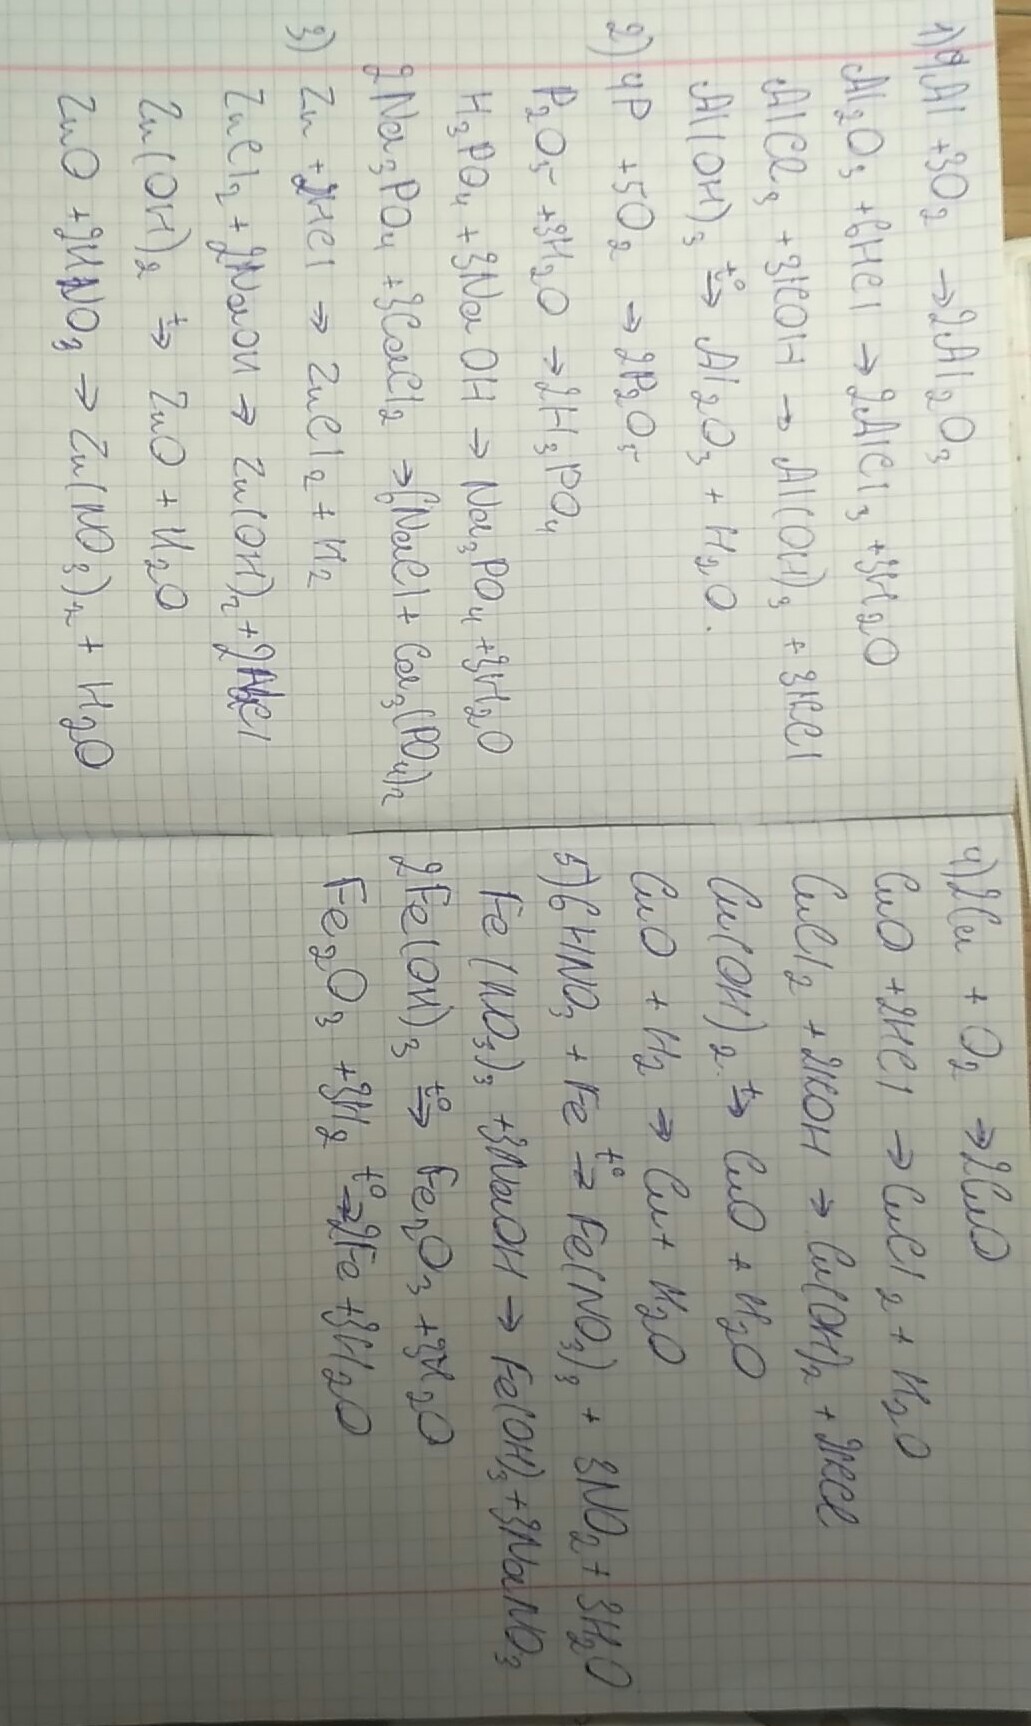 1) 4Al + 3O₂ → 2Al₂O₃
Al₂O₃ + 6HCl → 2AlCl₃ + 3H₂O
AlCl₃ + 3KOH → Al(OH)₃ + 3KCl
Al(OH)₃ t°→ Al₂O₃ + H₂O.
2) 4P + 5O₂ → 2P₂O₅
P₂O₅ + 3H₂O → 2H₃PO₄
H₃PO₄ + 3NaOH → Na₃PO₄ + 3H₂O
2Na₃PO₄ + 3CaCl₂ → 6NaCl + Ca₃(PO₄)₂
3) Zn + 2HCl → ZnCl₂ + H₂
ZnCl₂ + 2NaOH → Zn(OH)₂ + 2NaCl
Zn(OH)₂ t→ ZnO + H₂O
ZnO + 2HNO₃ → Zn(NO₃)₂ + H₂O
4) 2Cu + O₂ → 2CuO
CuO + 2HCl → CuCl₂ + H₂O
CuCl₂ + 2KOH → Cu(OH)₂ + 2KCl
Cu(OH)₂ t→ CuO + H₂O
CuO + H₂ → Cu + H₂O
5) 6HNO₃ + Fe t°→ Fe(NO₃)₃ + 3NO₂ + 3H₂O
Fe(NO₃)₃ + 3NaOH → Fe(OH)₃ + 3NaNO₃
2Fe(OH)₃ t°→ Fe₂O₃ + 3H₂O
Fe₂O₃ + 3H₂ t°→ 2Fe + 3H₂O